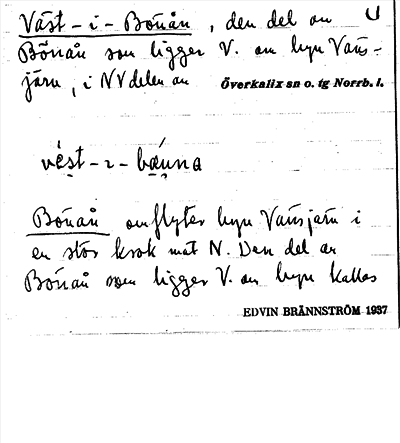 Väst-i-Bönån, den del av U
Bönån som ligger V. om byn Vänsjärv
järv, i NV delen av Överkalix sn o. tg Norrb. l.
vést-ı-bǽuna
Bönån omflyter byn Vänsjärv i
en stor krok mot N. Den del av
Bönån som ligger V. om byn kallas
EDVIN BRÄNNSTRÖM 1937